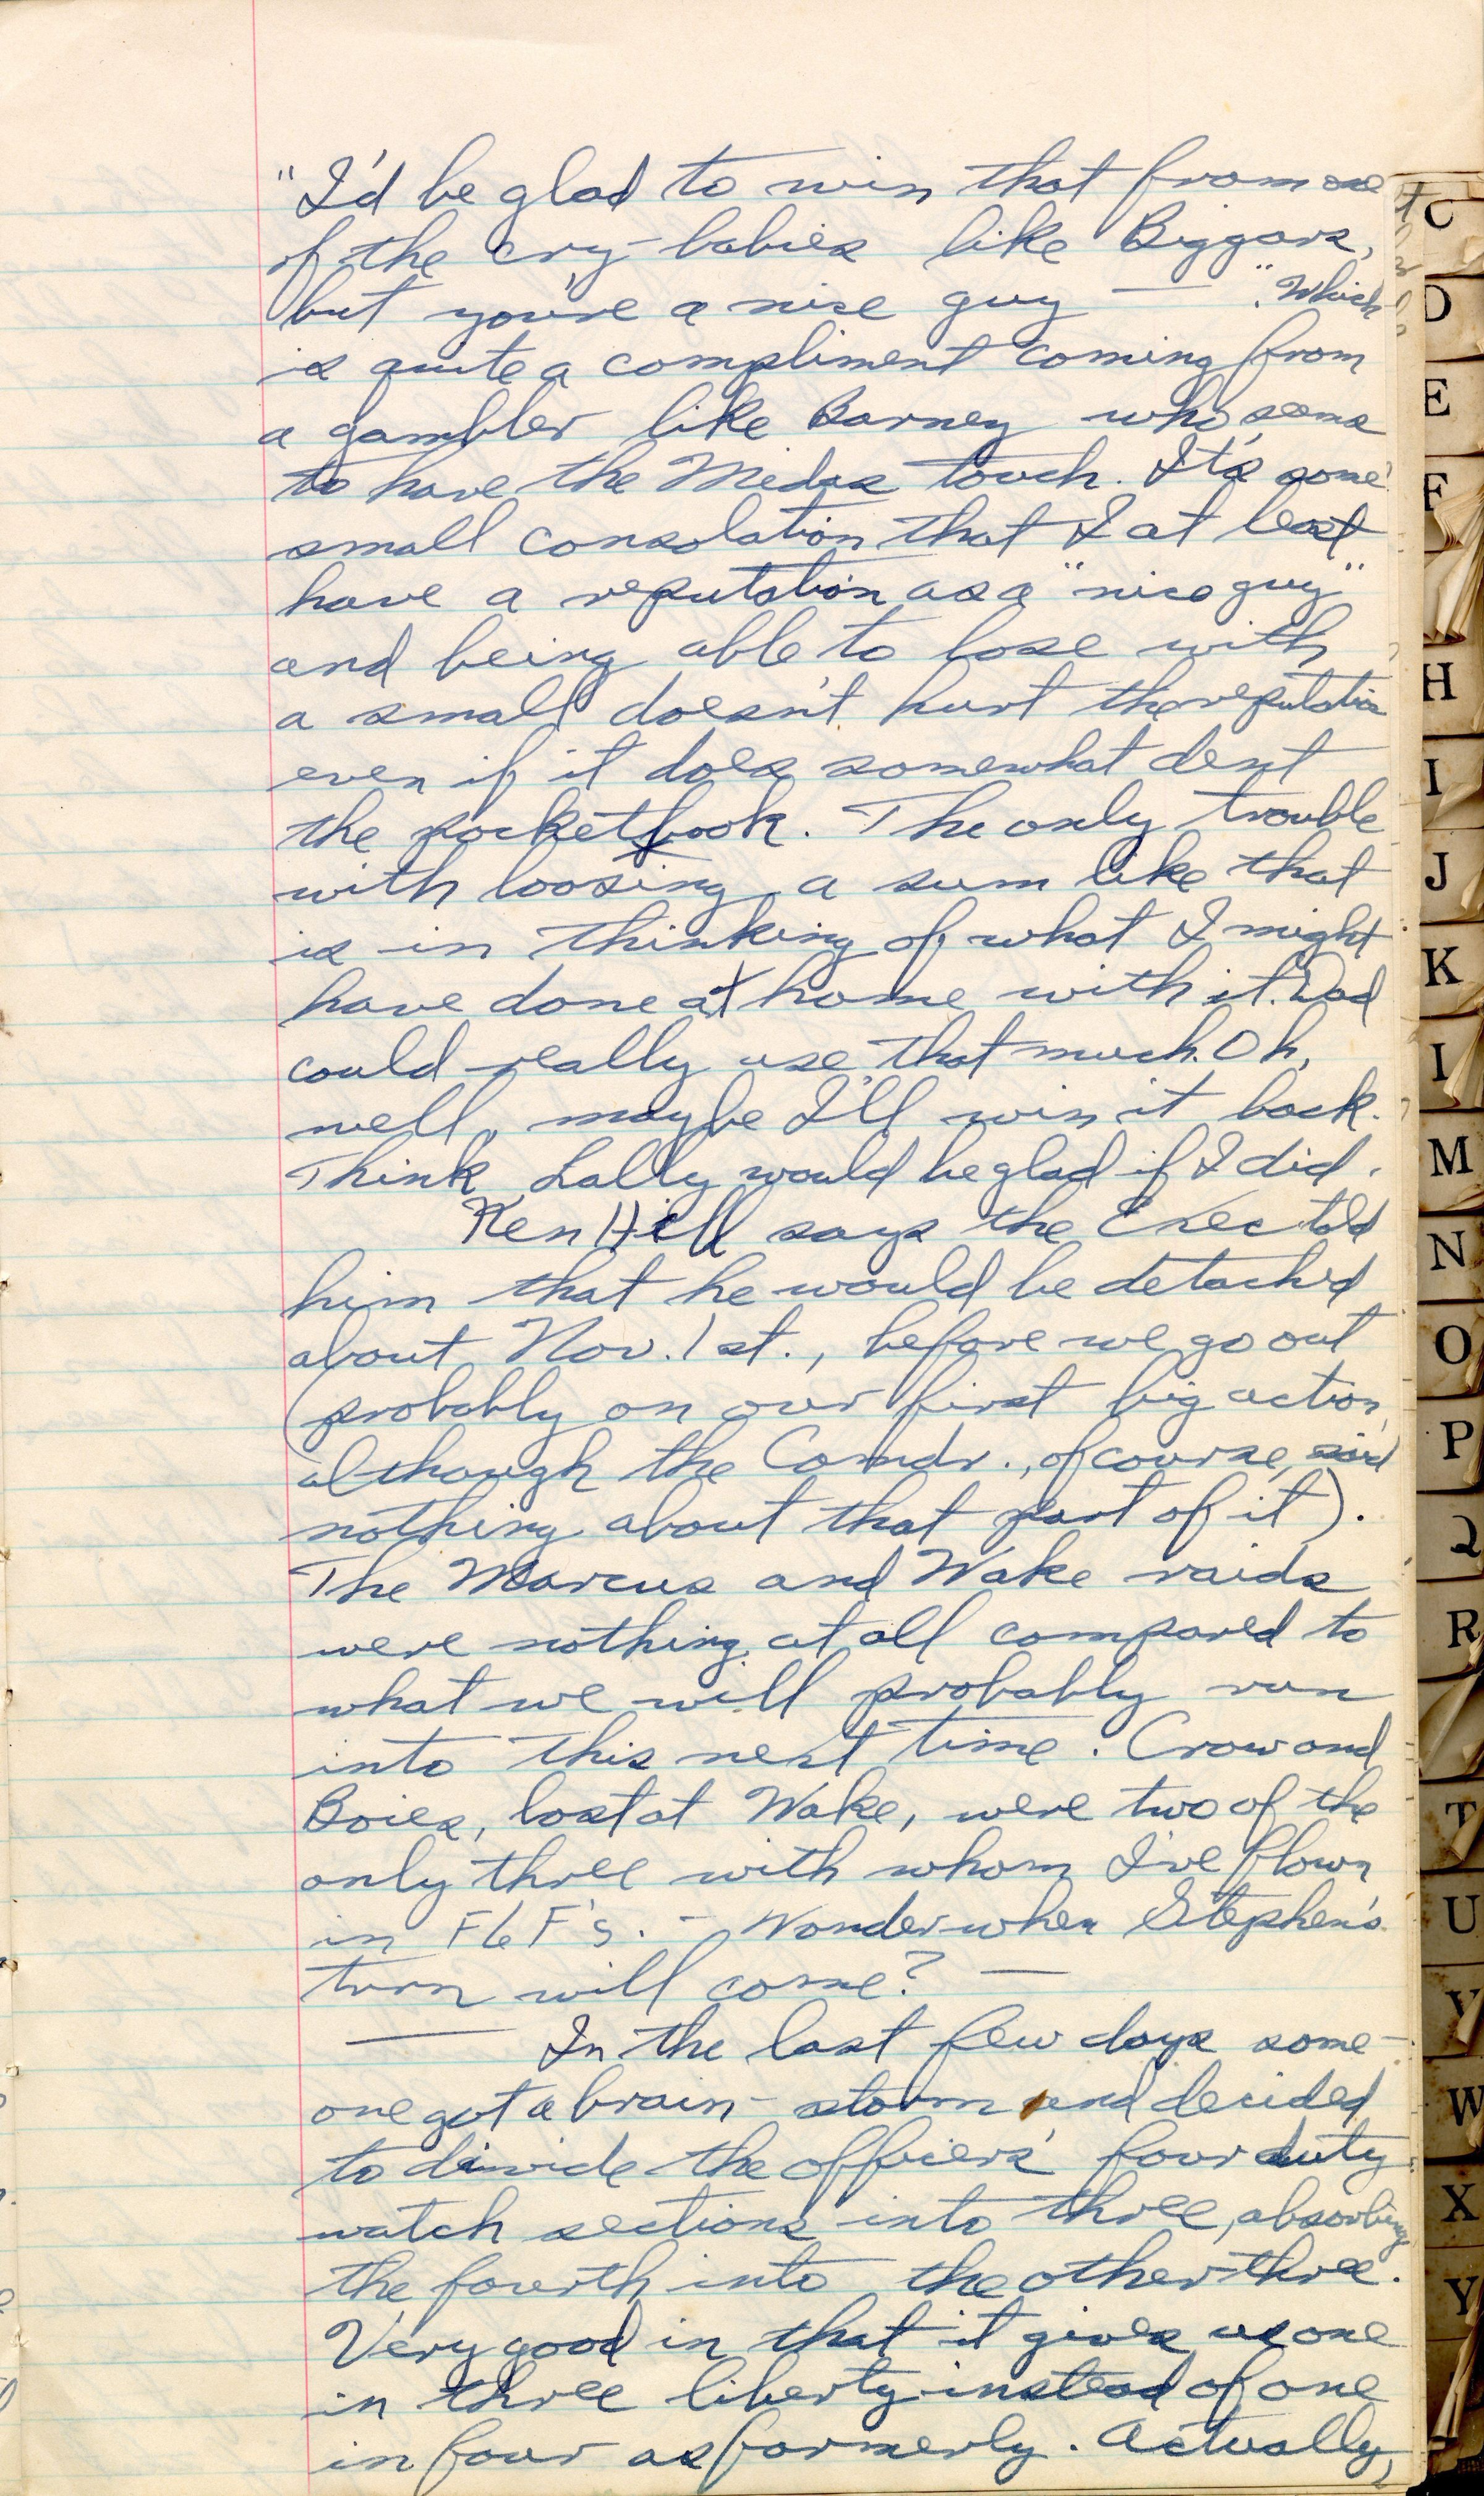 "I'd be glad to win that from one
of the cry-babies like Biggars,
but you're a nise guy — ." Which
is quite a compliment coming from
a gambler like Barney who seems
to have the Midas touch. It's some
small consolation that I at least
have a reputation as a "nice guy"
and being able to lose with
a small doesn't hurt the reputation
even if it does somewhat dent
the pocketbook. The only trouble
with loosing a sum like that
is in thinking of what I might
have done at home with it. Dad
could really use that much. Oh,
well, maybe I'll win it back.
Think Lally would be glad if I did.
Ken Hill says the Exec told
him that he would be detach'd
about Nov. 1st., before we go out
(probably on our first big action,
although the Comdr., of course, said
nothing about that part of it).
The Marcus and Wake raids
were nothing at all compared to
what we will probably run
into this next time. Crow and
Boies, lost at Wake, were two of the
only three with whom I've flown
in F6F's. - Wonder when Stephen's
turn will come? —
— In the last few days some-
one got a brain-storm and decided
to divide the officers' four duty
watch sections into three, absorbing
the fourth into the other three.
Very good in that it gives us one
in three liberty instead of one
in four as formerly. Actually,
C
D
E
F
H
I
J
K
I
M
N
O
P
Q
R
T
U
V
W
X
Y